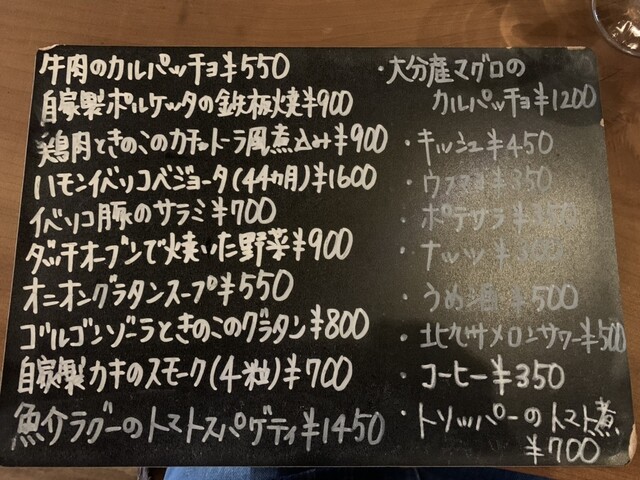 牛肉のカルパッチョ¥550
自家製ポルケッタの鉄板焼¥900
鶏肉ときのこのカチャトーラ風煮込み¥900
ハモンイベリコベジョータ(44ヵ月)¥1600
イベリコ豚のサラミ¥700
ダッチオーブンで焼いた野菜¥900
オニオングラタンスープ¥550
ゴルゴンゾーラときのこのグラタン¥800
自家製カキのスモーク(4粒)¥700
魚介ラグーのトマトスパゲティ¥1450
・大分産マグロの
カルパッチョ¥1200
・キッシュ¥450
・¥350
・ポテサラ
・ナッツ
・うめ酒¥500
・北九州メロンサワー¥500
・コーヒー¥350
・トリッパーのトマト煮
¥700